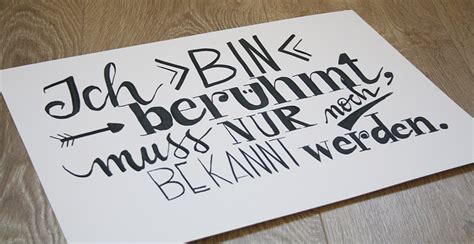 Ich »BIN«
berühmt,
muss NUR noch
BEKANNT werden.